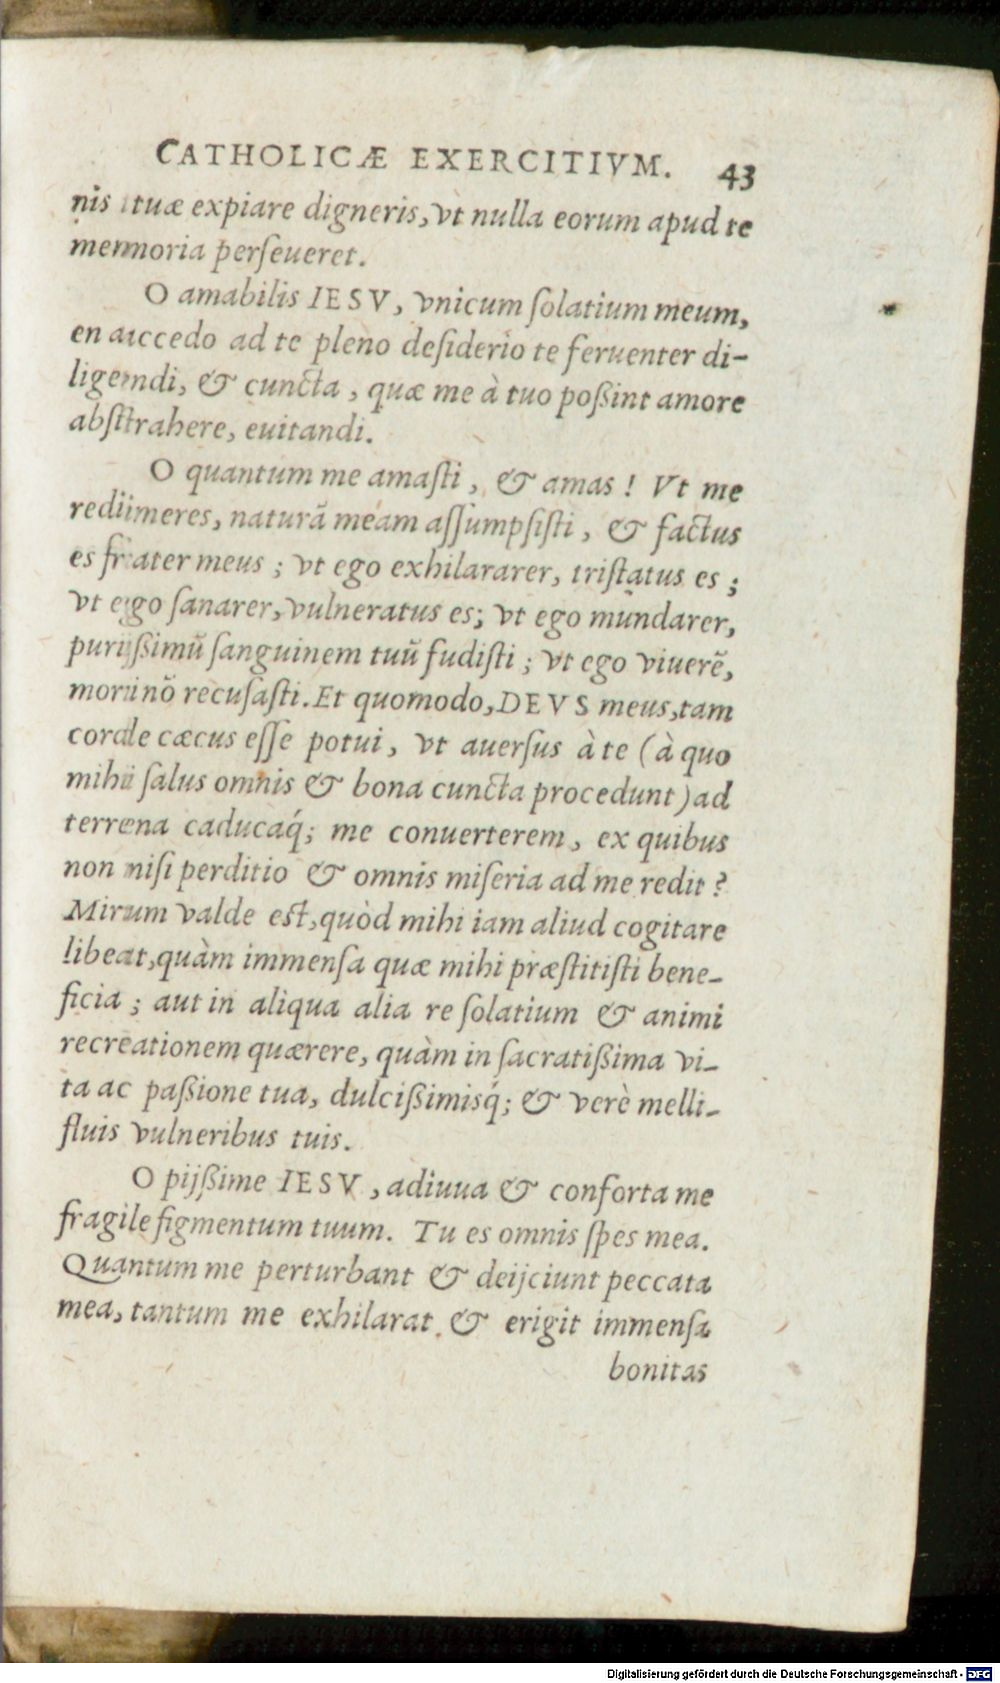 CATHOLICÆ EXERCITIVM. 43
nis tuæ expiare digneris, vt nulla eorum apud te
memoria perſeueret.
O amabilis IESV, vnicum ſolatium meum,
en accedo ad te pleno deſiderio te feruenter di-
ligendi, & cuncta, quæ me à tuo poßint amore
abſtrahere, euitandi.
O quantum me amaſti, & amas! Vt me
redimeres, naturā meam aſſumpſiſti, & factus
es frater meus; vt ego exhilararer, triſtatus es;
vt ego ſanarer, vulneratus es; vt ego mundarer,
purißimū ſanguinem tuū fudiſti; vt ego viuerē,
mori nō recuſaſti. Et quomodo, DEVS meus, tam
corde cæcus eſſe potui, vt auerſus à te (à quo
mihi ſalus omnis & bona cuncta procedunt) ad
terrena caducaq́; me conuerterem, ex quibus
non niſi perditio & omnis miſeria ad me redit?
Mirum valde est, quòd mihi iam aliud cogitare
libeat, quàm immenſa quæ mihi præſtitiſti bene-
ficia; aut in aliqua alia re ſolatium & animi
recreationem quærere, quàm in ſacratißima vi-
ta ac paßione tua, dulcißimisq́; & verè melli-
fluis vulneribus tuis.
O pijßime IESV, adiuua & conforta me
fragile figmentum tuum. Tu es omnis ſpes mea.
Quantum me perturbant & deijciunt peccata
mea, tantum me exhilarat & erigit immenſa
bonitas
Digitalisierung gefördert durch die Deutsche Forschungsgemeinschaft - DFG